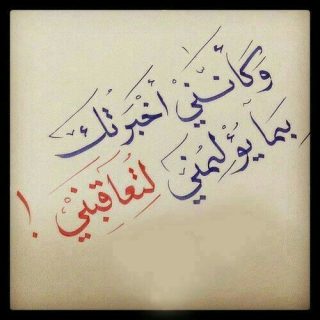 وَكَأَنّنيْ أخْبَرتُك
بِمَا يُؤلِمُنِيْ لِتُعاقِبَنِيْ !